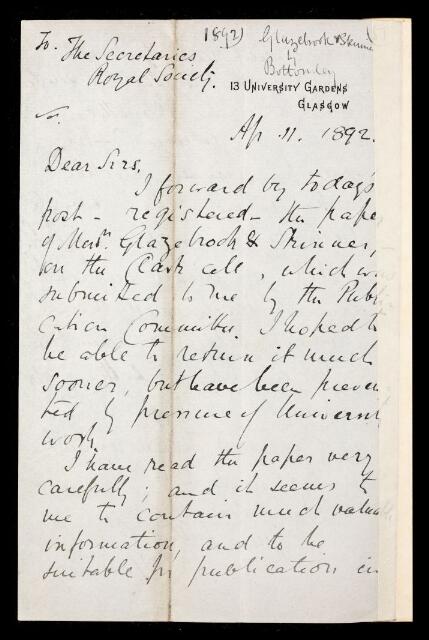 1892)
Glazebrook & Skinner
4
Bottomley
To. The Secretaries
Royal Society.
13 UNIVERSITY GARDENS
GLASGOW
Ap. 11. 1892.
Dear Sirs,
I forward by today's
post – registered – the pape
of Messrs. Glazebrook & Skinner,
on the Clark cell, which w
submitted to me by the Publi
cation Committee. I hoped t
be able to return it much
sooner, but have been preven
ted by pressure of Universit
work
I have read the paper very
carefully; and it seems t
me to contain much valua
information, and to be
suitable for publication in